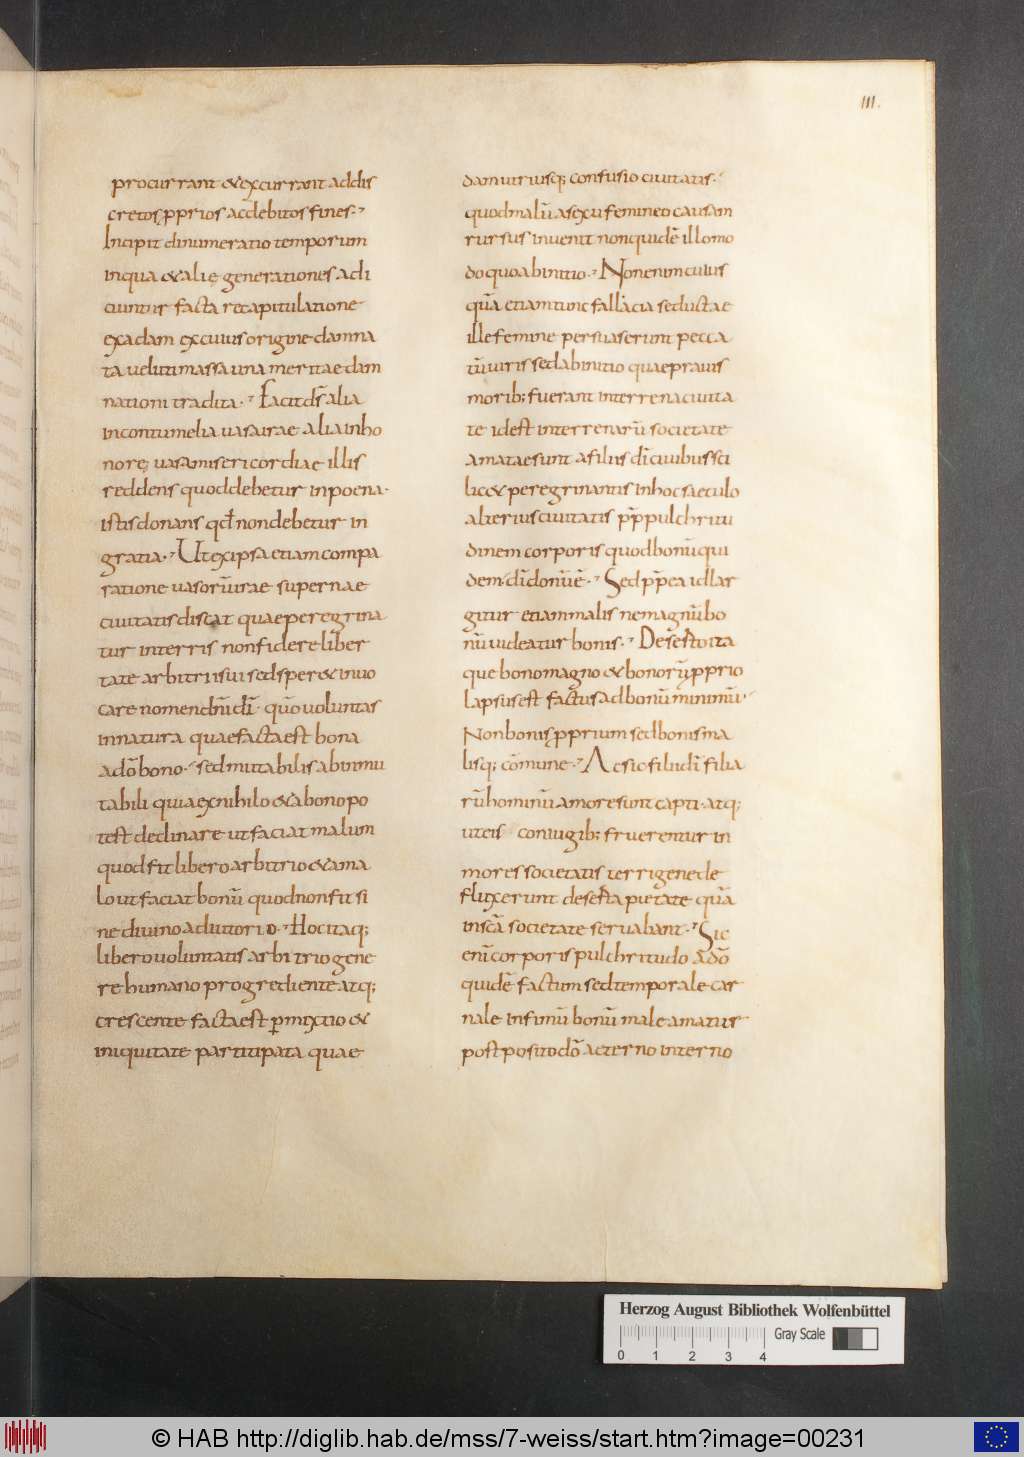 111.
procurrant & excurrant addis
cretos, pprios acdebitos fines.
Incipit dinumeratio temporum
in qua & alie generationes adi
ciuntur facta recapitulatione
ex adam ex cuius origine damna
ta uelutimassa una meritae dam
nationi tradita. Facit ds alia
in contumelia uasa irae alia in ho
nore uasa misericordiae illis
reddens quod debetur in poena.
istis donans qd non debetur in
gratia. Ut ex ipsa etiam compa
ratione uasorū irae supernae
ciuitatis discat quae peregrina
tur in terris non fidere liber
tate arbitrii sui sed sper& inuo
care nomen dnī dī. quō uoluntas
in natura quae facta est bona
adō bono. sed mutabilis ab inmu
tabili quia ex nihilo & a bono po
test declinare ut faciat malum
quod fit libero arbitrio & a ma
lo ut faciat bonū quod non fit si
ne diuino adiutorio. Hoc itaq;
libero uoluntatis arbitrio gene
re humano progrediente atq;
crescente facta est pmixtio &
iniquitate participata quae
dam utriusq; confusio ciuitatis.
quod malū a sexu femineo causam
rursus inuenit non quidē illo mo
do quo ab initio. Non enim cuius
quā etiam tunc fallacia seductae
ille femine persuaserunt pecca
tū uiris sed ab initio quae prauis
morib; fuerant in terrena ciuita
te id est in terrenarū societate
amatae sunt a filiis dī ciuibus sci
lic& peregrinantis in hoc saeculo
alterius ciuitatis pp pulchritu
dinem corporis quod bonū qui
dem dī donū ē. Sed pp ea id lar
gitur etiam malis ne magnū bo
nū uideatur bonis. Deserto ita
que bono magno & bonorū pprio
lapsus est factus ad bonū minimū
Non bonis pprium sed bonis ma
lisq; cōmune. Ac sic filii dī filia
rū hominū amore sunt capti. atq;
ut eis coniugib; fruerentur in
mores societatis terrigene de
fluxerunt deserta pietate quā
in scā societate seruabant. Sic
enī corporis pulchritudo a dō
quidē factum sed temporale car
nale infimū bonū male amatur
postposito dō aeterno interno
Herzog August Bibliothek Wolfenbüttel
0 1 2 3 4 Gray Scale
© HAB http://diglib.hab.de/mss/7-weiss/start.htm?image=00231